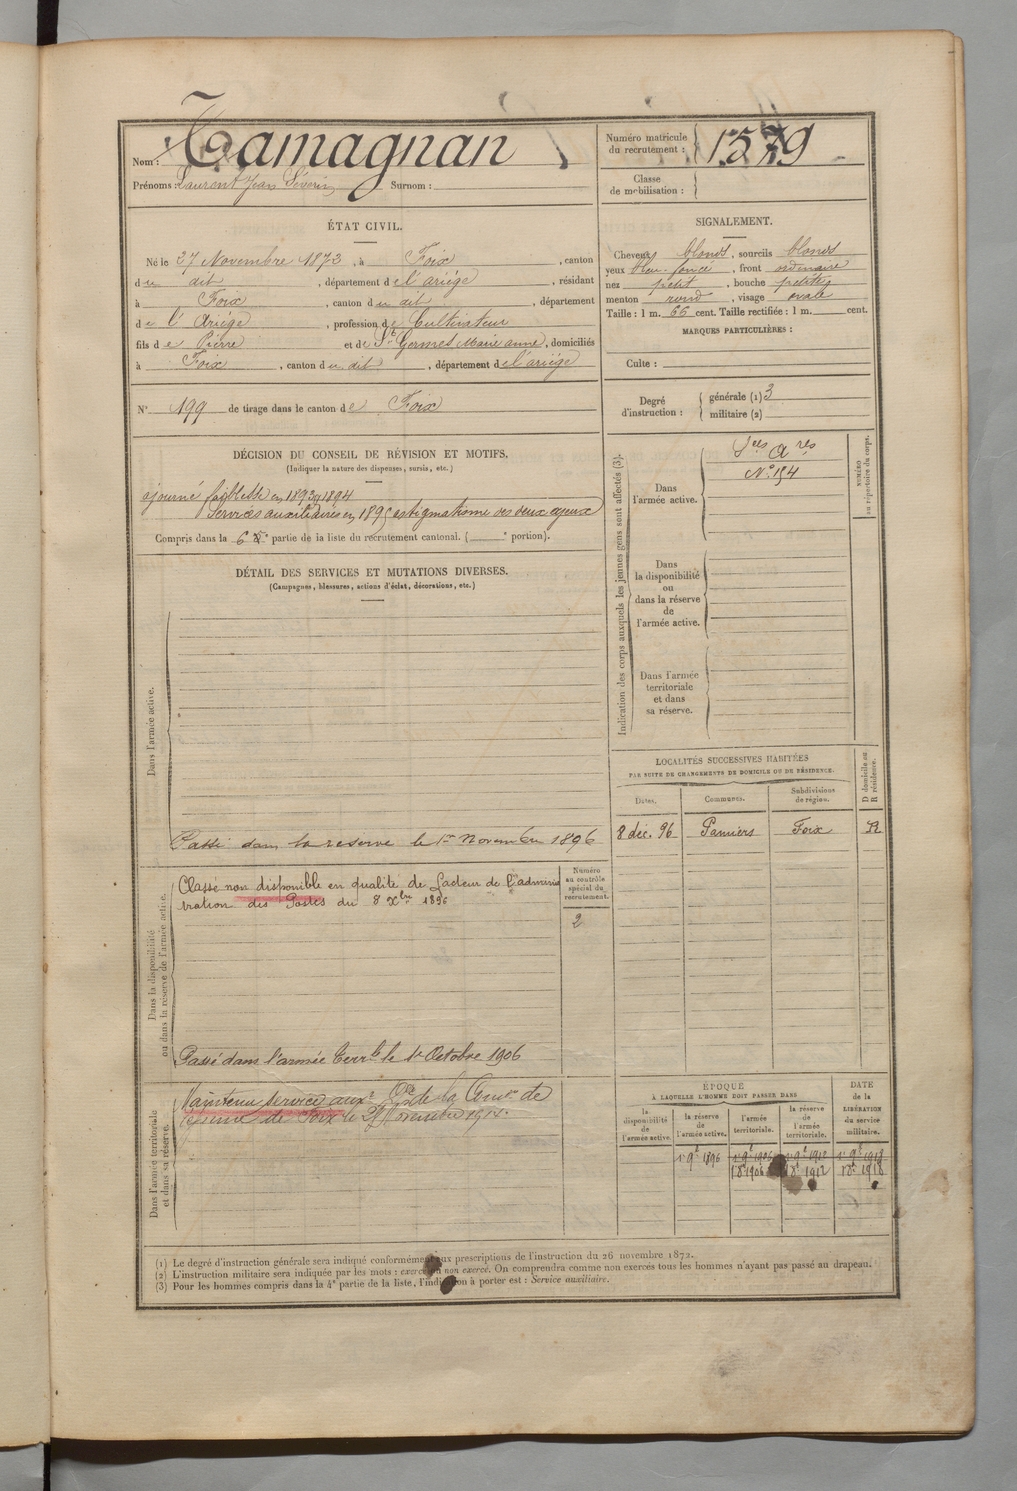 Nom : Tamagnan
Prénoms : Laurent Jean Séverin Surnom :
Numéro matricule du recrutement : 1579
Classe de mobilisation :
ÉTAT CIVIL.
Né le 27 Novembre 1873, à Foix, canton
du dit, département de l'ariége, résidant
à Foix, canton du dit, département
de l'Ariége, profession de Cultivateur
fils de Pierre et de St Germes Marie anne, domiciliés
à Foix, canton du dit, département de l'ariége
N° 199 de tirage dans le canton de Foix
SIGNALEMENT.
Cheveux blonds, sourcils blonds
yeux bleu-foncé, front ordinaire
nez petit, bouche petite
menton rond, visage ovale
Taille : 1 m. 66 cent. Taille rectifiée : 1 m. cent.
MARQUES PARTICULIÈRES :
Culte :
Degré d'instruction : générale (1) 3
militaire (2)
DÉCISION DU CONSEIL DE RÉVISION ET MOTIFS.
(Indiquer la nature des dispenses, sursis, etc.)
ajourné faiblesse en 1893 1894
Services auxiliaires en 1895 astigmatisme des deux yeux
Compris dans la 6e partie de la liste du recrutement cantonal. ( e portion).
DÉTAIL DES SERVICES ET MUTATIONS DIVERSES.
(Campagnes, blessures, actions d'éclat, décorations, etc.)
Dans l'armée active.
Passé dans la reserve le 1er Novembre 1896
Dans la disponibilité
ou dans la réserve de l'armée active.
Classé non disponible en qualité de facteur de l'adminis
tration des Postes du 8 Xbre 1896
Numéro
au contrôle
spécial du
recrutement.
2
Passé dans l'armée terrle le 1er Octobre 1906
Dans l'armée territoriale
et dans sa réserve.
Maintenu service auxre de la de
de Foix le Novembre 1914.
Indication des corps auxquels les jeunes gens sont affectés (3).
NUMÉRO
au répertoire du corps.
Dans
l'armée active.
Sces Ares
N° 154
Dans
la disponibilité
ou
dans la réserve
de
l'armée active.
Dans l'armée
territoriale
et dans
sa réserve.
LOCALITÉS SUCCESSIVES HABITÉES
PAR SUITE DE CHANGEMENTS DE DOMICILE OU DE RÉSIDENCE.
Dates. Communes. Subdivisions de région. D domicile ou R résidence.
8 déc. 96 Pamiers Foix R
ÉPOQUE
À LAQUELLE L'HOMME DOIT PASSER DANS
la disponibilité de l'armée active.
la réserve de l'armée active.
l'armée territoriale.
la réserve de l'armée territoriale.
DATE de la LIBÉRATION du service militaire.
1er 9e 1896 1er 9e 1906 1er 9e 1912 1er 9e 1918
1 8e 1906 1 8e 1912 1 8e 1918
(1) Le degré d'instruction générale sera indiqué conformément aux prescriptions de l'instruction du 26 novembre 1872.
(2) L'instruction militaire sera indiquée par les mots : exercé ou non exercé. On comprendra comme non exercés tous les hommes n'ayant pas passé au drapeau.
(3) Pour les hommes compris dans la 4e partie de la liste, l'indication à porter est : Service auxiliaire.